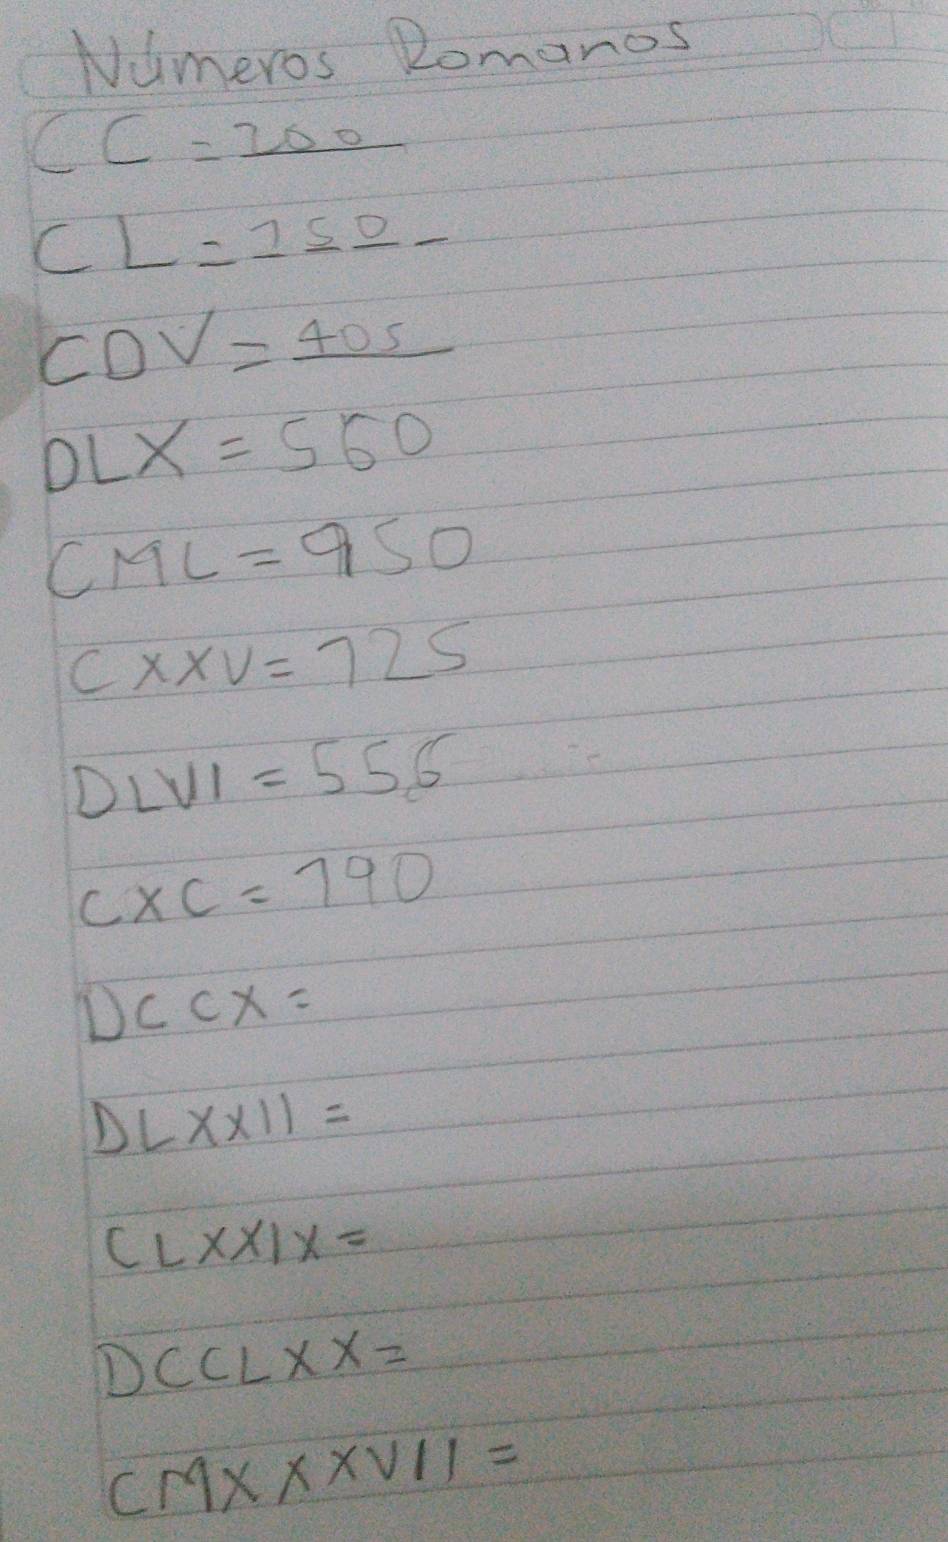 Números Romanos
CC = 200
CL = 150
CDV = 405
DLX = 560
CML = 950
CXXV = 125
DLVI = 556
CXC = 190
DCCX =
DLXXII =
CLXXIX =
DCCLXX =
CMXXXVII =